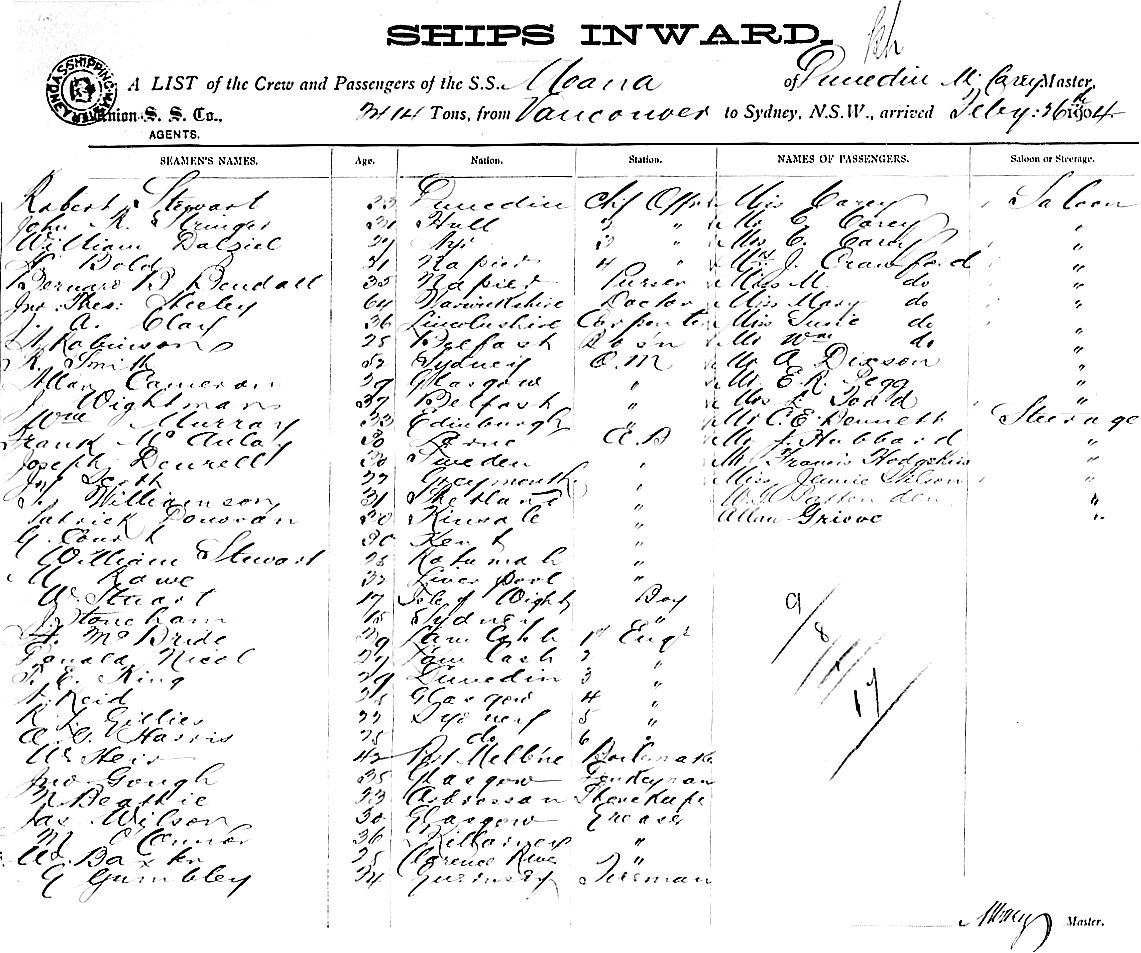 SHIPS INWARD.
A LIST of the Crew and Passengers of the S.S. Moana of Dunedin M. Carey Master,
Union S. S. Co., AGENTS. Tons, from Vancouver to Sydney, N.S.W., arrived Feby: 26th 1904
SEAMEN'S NAMES. Age. Nation. Station. NAMES OF PASSENGERS. Saloon or Steerage.
Robert Stewart Dunedin Chf Offr Miss Carey Saloon
John R. Stringer Hull 2 " Mr E. Carey "
William Dalziel 3 " Mrs E. Carey "
Bold 31 Napier 4 " J. Crawford "
Bernard B. Bendall 35 Napier Purser Miss M. do "
Jno. Thos: Sheeley 64 Warwickshire Doctor Miss Mary do "
J. A. Clay 36 Lincolnshire Carpenter Miss Susie do "
Robinson 25 Belfast Bosn Mr Wm do "
R. Smith 52 Sydney Q.M Mr A Dixson "
Allan Cameron 29 Glasgow " Mr E.R. Pegg "
J. Wightman 37 Belfast " Mrs L Dodd "
Wm Murray 33 Edinburgh " Mr C.E. Bennett Steerage
Frank McAulay 30 Larne A.B Mr J. Hubbard "
Joseph Deurell 30 Sweden " Mr Francis Hodgkins "
Greymouth " Miss Jennie Wilson "
Williamson 31 Shetland "
Patrick Donovan 30 Kinsale " Allan Grieve "
G. Court 30 Kent "
William Stewart 28 "
Rowe 33 Liverpool "
W. Stuart 17 Isle of Wight Boy
J. Stoneham 15 Sydney "
McBride 39 1st Engr
Donald Nicol 2 "
T. E. King 29 Dunedin 3 "
Reid 28 Glasgow 4 "
R. J. Gillies 23 Sydney 5 "
A. G. Harris 25 do 6 "
W. Heir 42 Port Melb'ne Boilermaker
Jno Gough 35 Glasgow Donkeyman
M Beattie 23 Ardrossan Storekeepr
Jas Wilson 30 Glasgow Greaser
M. O'Connor 36 Killarney "
W. Baxter 25 Clarence River "
G Gumbley 34 Guernsey Fireman
9/8/
17
M Carey Master.